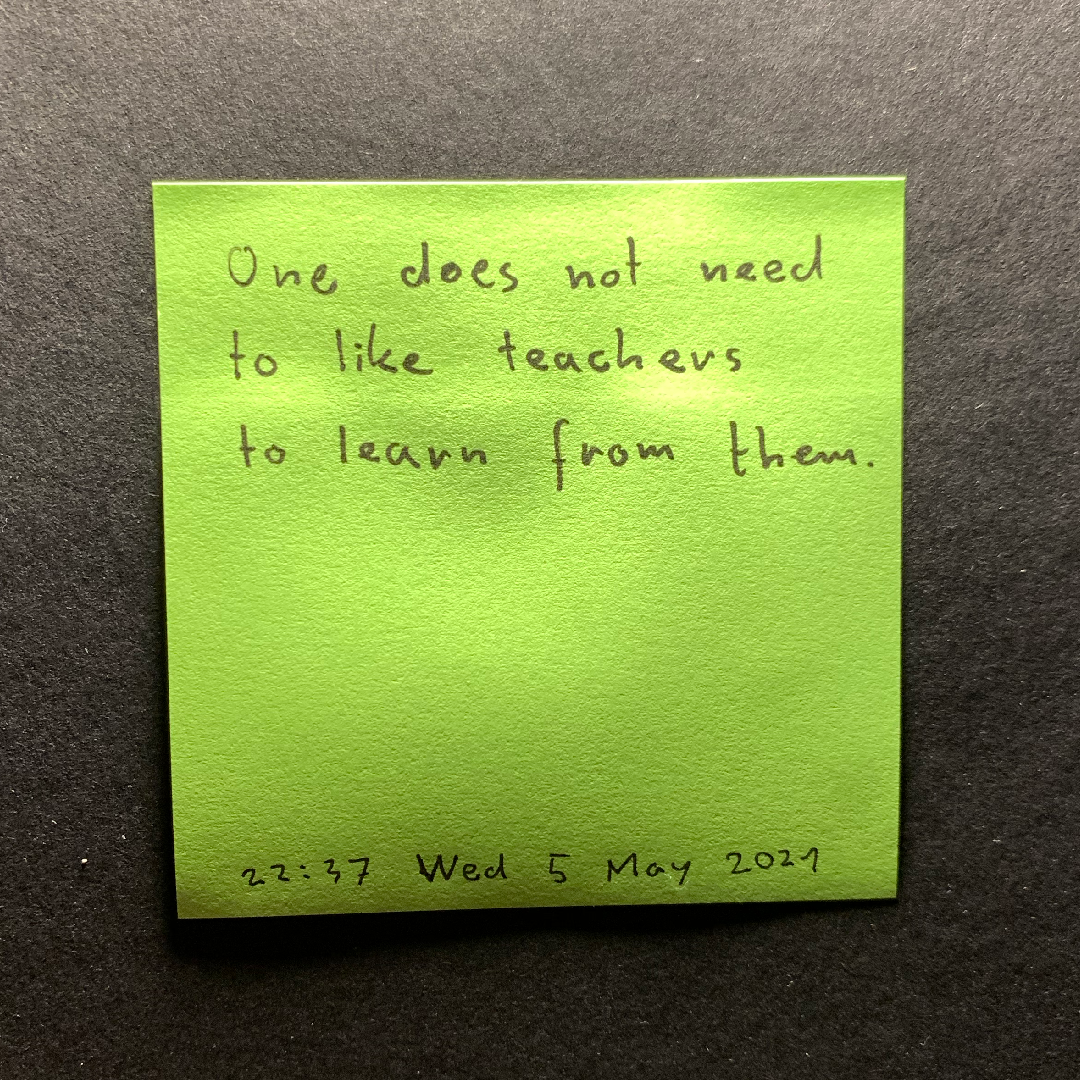 One does not need
to like teachers
to learn from them.
22:37 Wed 5 May 2021